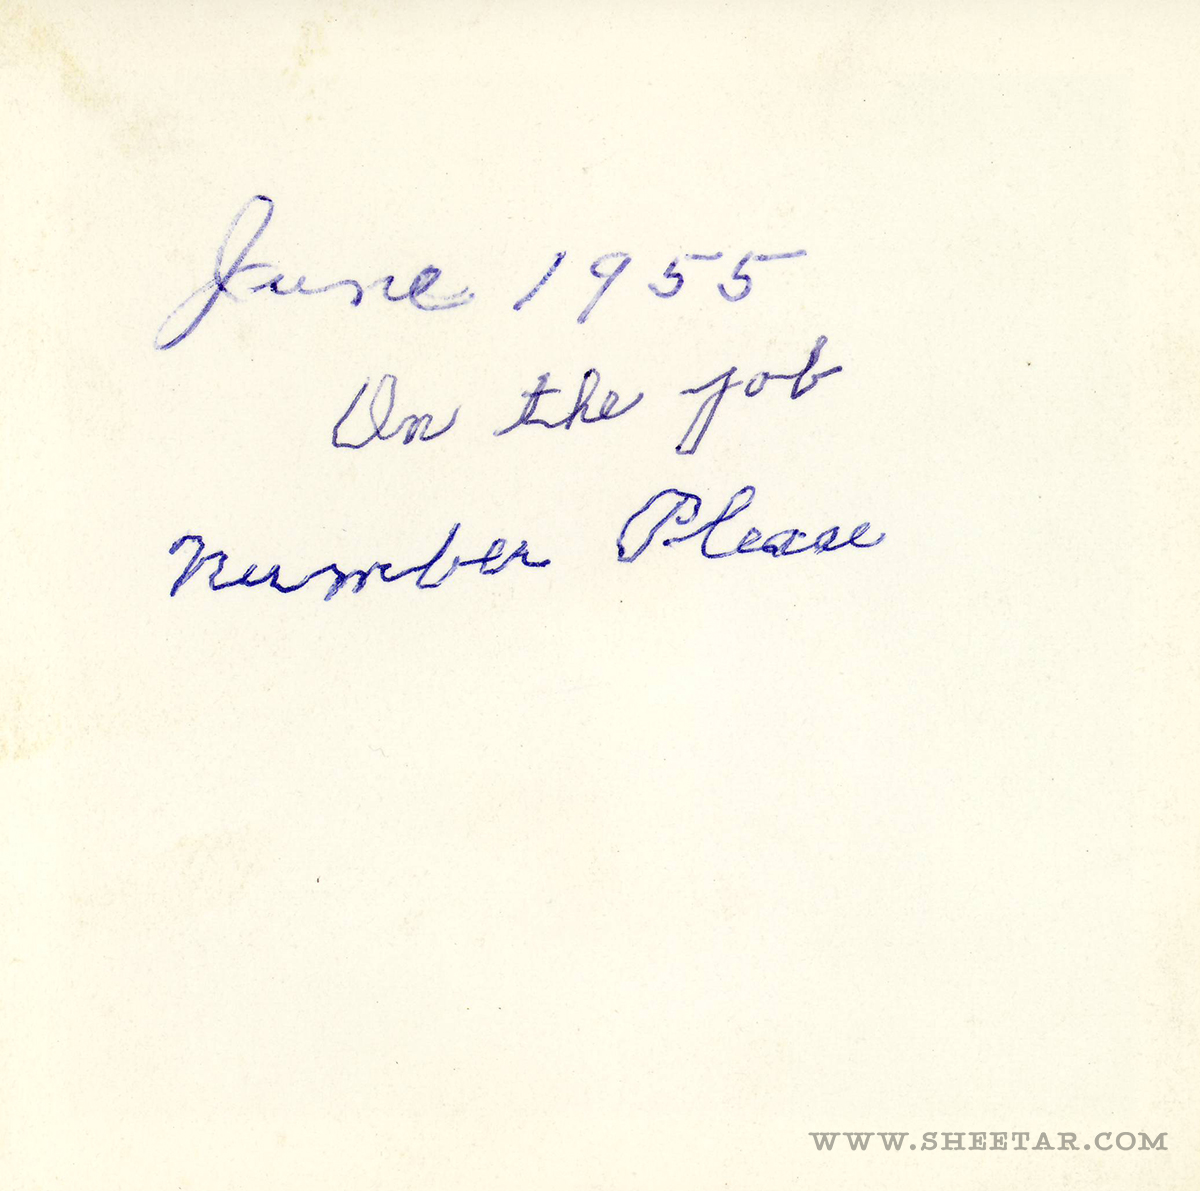 June 1955
On the job
Number Please
WWW.SHEETAR.COM